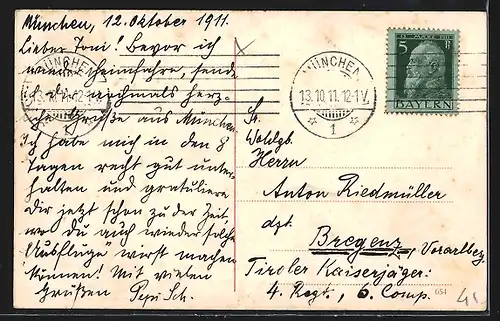 München, 12. Oktober 1911.
Lieber Toni! Bevor ich
wieder heimfahre, sende
ich dir nochmals herz-
liche Grüße aus München.
Ich habe mich in den 8
Tagen recht gut unter-
halten und gratuliere
Dir jetzt schon zu der Zeit,
wo du auch wieder solche
"Ausflüge" wirst machen
können! Mit vielen
Grüßen Pepi Sch.
MÜNCHEN
13.10.11. 12-1V.
1
MÜNCHEN
13.10.11. 12-1V.
1
5 Pf
BAYERN
Sr.
Wohlgb.
Herrn
Anton Riedmüller
dzt.
Bregenz, Vorarlbg.
Tiroler Kaiserjäger:
4. Regt., 6. Comp.
654
41